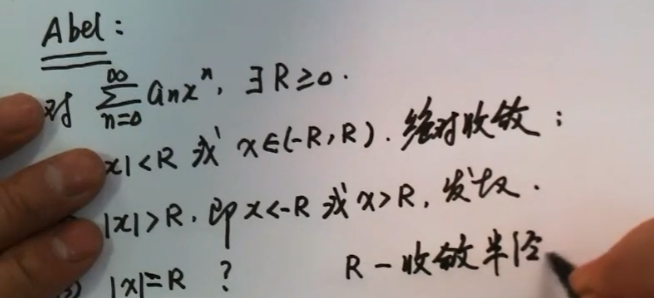 Abel:
对 ∑_{n=0}^{∞} aₙxⁿ, ∃ R≥0.
x|<R 或 x∈(-R,R). 绝对收敛;
|x|>R, 即 x<-R 或 x>R, 发散.
|x|=R ? R-收敛半径